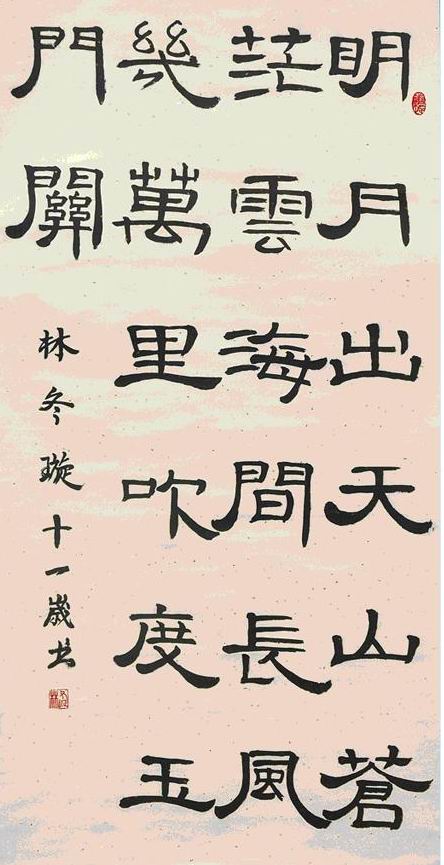 明月出天山蒼
茫雲海間長風
幾萬里吹度玉
門關
林冬璇十一歲书